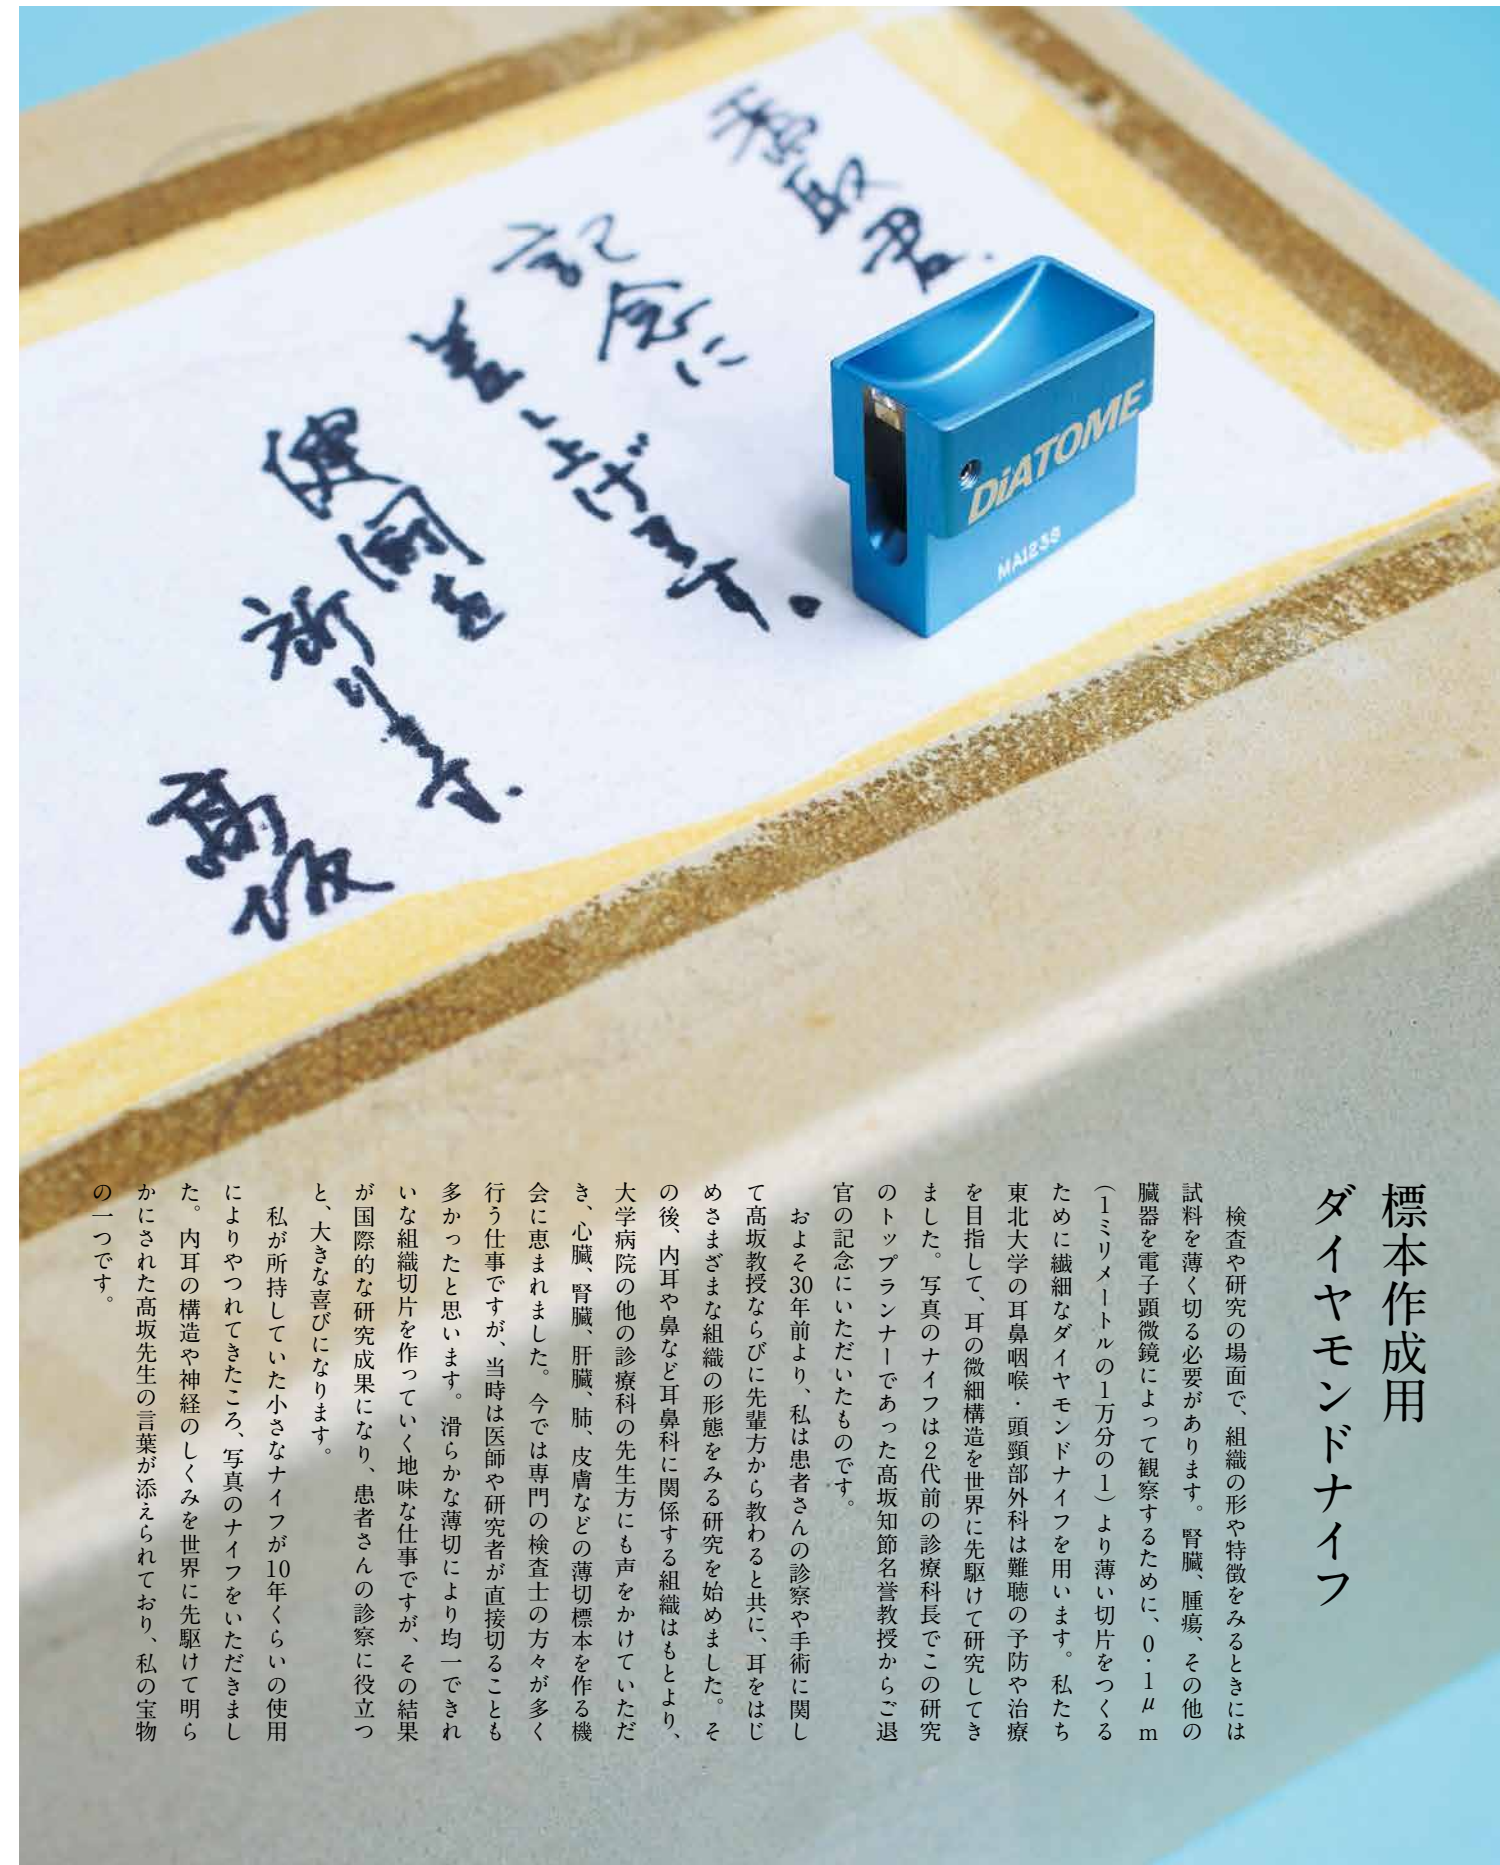 香取君
記念に
差し上げます。
健闘を
祈ります。
髙坂
DiATOME
MA1238
標本作成用
ダイヤモンドナイフ
検査や研究の場面で、組織の形や特徴をみるときには
試料を薄く切る必要があります。腎臓、腫瘍、その他の
臓器を電子顕微鏡によって観察するために、0.1μm
（1ミリメートルの1万分の1）より薄い切片をつくる
ために繊細なダイヤモンドナイフを用います。私たち
東北大学の耳鼻咽喉・頭頸部外科は難聴の予防や治療
を目指して、耳の微細構造を世界に先駆けて研究してき
ました。写真のナイフは2代前の診療科長でこの研究
のトップランナーであった髙坂知節名誉教授からご退
官の記念にいただいたものです。
およそ30年前より、私は患者さんの診察や手術に関し
て髙坂教授ならびに先輩方から教わると共に、耳をはじ
めさまざまな組織の形態をみる研究を始めました。そ
の後、内耳や鼻など耳鼻科に関係する組織はもとより、
大学病院の他の診療科の先生方にも声をかけていただ
き、心臓、腎臓、肝臓、肺、皮膚などの薄切標本を作る機
会に恵まれました。今では専門の検査士の方々が多く
行う仕事ですが、当時は医師や研究者が直接切ることも
多かったと思います。滑らかな薄切により均一できれ
いな組織切片を作っていく地味な仕事ですが、その結果
が国際的な研究成果になり、患者さんの診察に役立つ
と、大きな喜びになります。
私が所持していた小さなナイフが10年くらいの使用
によりやつれてきたころ、写真のナイフをいただきまし
た。内耳の構造や神経のしくみを世界に先駆けて明ら
かにされた髙坂先生の言葉が添えられており、私の宝物
の一つです。